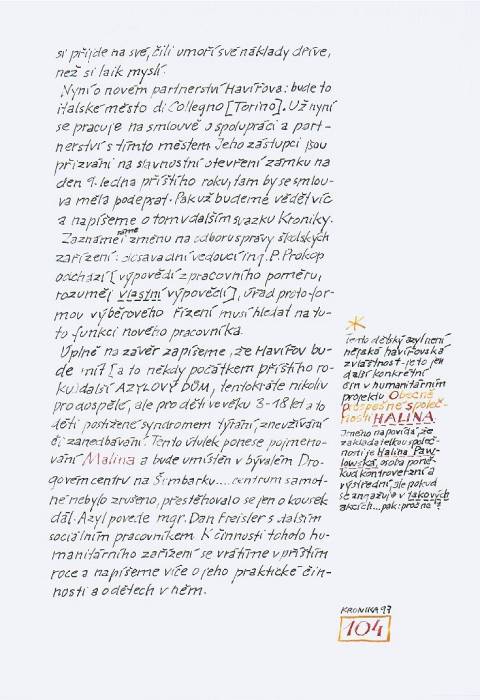 si přijde na své, čili umoří své náklady dříve,
než si laik myslí.
Nyní o novém partnerství Havířova: bude to
italské město di Collegno [Torino]. Už nyní
se pracuje na smlouvě o spolupráci a part-
nerství s tímto městem. Jeho zástupci jsou
přizváni na slavnostní otevření zámku na
den 9. ledna příštího roku, tam by se smlou-
va měla podepsat. Pak už budeme vědět víc
a napíšeme o tom v dalším svazku Kroniky.
Zaznamenáme změnu na odboru správy školských
zařízení: dosavadní vedoucí ing. P. Prokop
odchází [výpovědí z pracovního poměru,
rozuměj vlastní výpovědí], úřad proto for-
mou výběrového řízení musí hledat na tu-
to funkci nového pracovníka.
Úplně na závěr zapíšeme, že Havířov bu-
de mít [a to někdy počátkem příštího ro-
ku] další AZYLOVÝ DŮM, tentokráte nikoliv
pro dospělé, ale pro děti ve věku 3-18 let a to
děti postižené syndromem týrání, zneužívání
či zanedbávání. Tento útulek ponese pojmeno-
vání Malina a bude umístěn v bývalém Dro-
govém centru na Šimbarku.... centrum samot-
né nebylo zrušeno, přestěhovalo se jen o kousek
dál. Azyl povede mgr. Dan Freisler s dalším
sociálním pracovníkem. K činnosti tohoto hu-
manitárního zařízení se vrátíme v příštím
roce a napíšeme více o jeho praktické čin-
nosti a o dětech v něm.
Tento dětský azyl není
nějaká havířovská
zvláštnost - je to jen
další konkrétní
čin v humanitárním
projektu Obecně
prospěšné společ-
nosti HALINA
Jméno napovídá, že
zakladatelkou společ-
nosti je Halina Paw-
lowská, osoba poně-
kud kontroverzní a
výstřední, ale pokud
se angažuje v takových
akcích... pak: proč ne?
KRONIKA 97
104